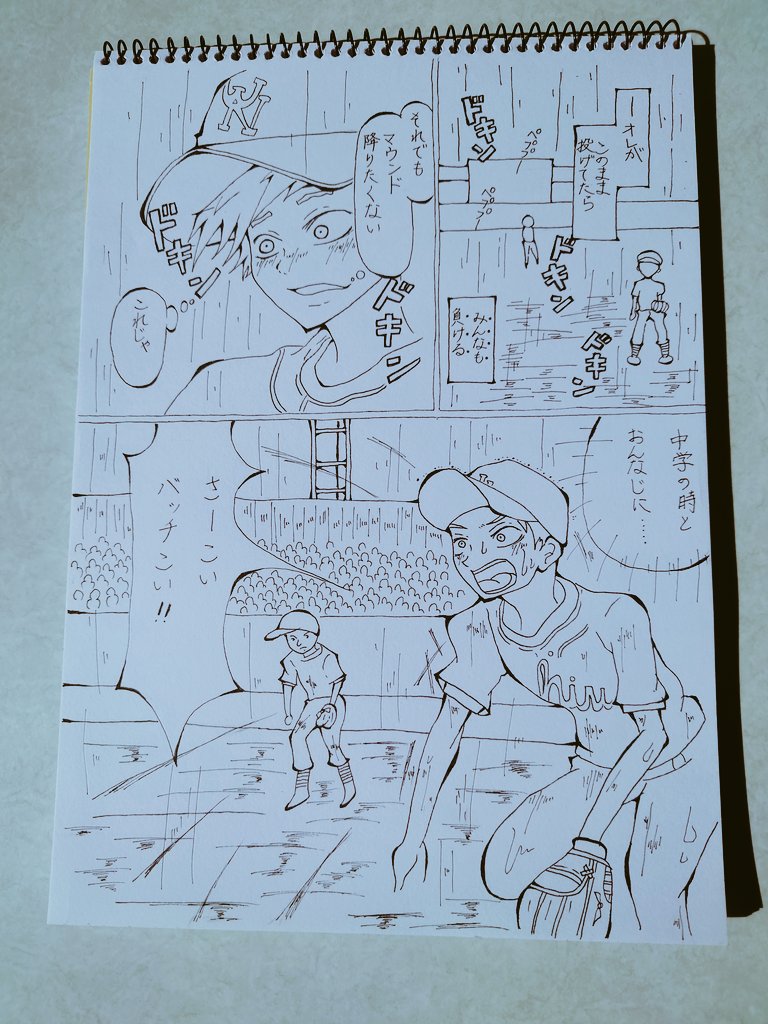 ーオレが
このまま
投げてたら
ドキン
ペププー
ペププー
ドキン
ドキン
みんなも
負ける
それでも
マウンド
降りたくない
ドキン
ドキン
これじゃ
中学の時と
おんなじに……
さーこい
バッチこい!!